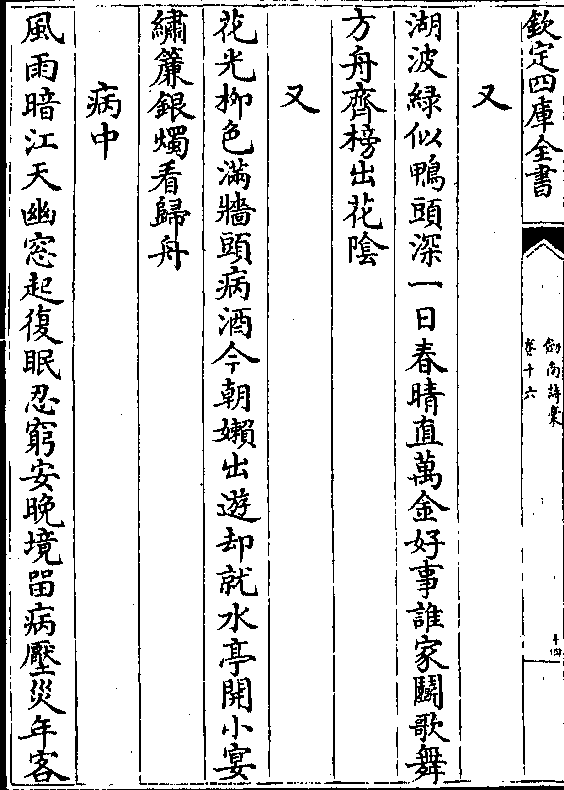 欽定四庫全書
劍南詩稾
卷十六
十四
又
湖波緑似鴨頭深一日春晴直萬金好事誰家鬬歌舞
方舟齊榜出花陰
又
花光柳色滿牆頭病酒今朝嬾出遊却就水亭開小宴
繡簾銀燭看歸舟
病中
風雨暗江天幽窓起復眠忍窮安晚境留病壓災年客